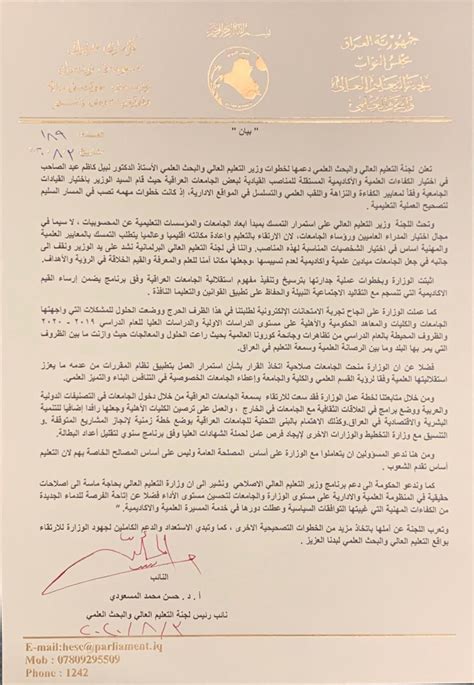 بسم الله الرحمن الرحيم
جمهورية العراق
مجلس النواب
لجنة التعليم العالي
" بيان "
العدد: ١٨٩
تعلن لجنة التعليم العالي والبحث العلمي دعمها لخطوات وزير التعليم العالي والبحث العلمي الأستاذ الدكتور نبيل كاظم عبد الصاحب
في اختيار الكفاءات العلمية والأكاديمية المستقلة للمناصب القيادية لبعض الجامعات العراقية حيث قام السيد الوزير باختيار القيادات
الجامعية وفقاً لمعايير الكفاءة والنزاهة واللقب العلمي والتسلسل في المواقع الادارية، إذ كانت خطوات مهمه نصب في المسار السليم
لتصحيح العملية التعليمية .
وتحث اللجنة وزير التعليم العالي على استمرار التمسك بمبدا ابعاد الجامعات والمؤسسات التعليمية عن المحسوبيات ، لا سيما في
مجال اختيار المدراء العاميين ورؤساء الجامعات، لان الارتقاء بالتعليم واعادة مكانته إقليمياً وعالمياً يتطلب التمسك بالمعايير العلمية
والمهنية اساس في اختيار الشخصيات المناسبة لهذه المناصب. واننا في لجنة التعليم العالي البرلمانية نشد على يد الوزير ونقف الى
جانبه في جعل الجامعات ميادين علمية واكاديمية لعدم تسييسها وجعلها مكانا آمنا للعلم والمعرفة والقيم الخلاقة في الرؤية والأهداف.
اثبتت الوزارة وبخطوات عملية جدارتها بترسيخ وتنفيذ مفهوم استقلالية الجامعات العراقية وفق برنامج يضمن إرساء القيم
الاكاديمية التي تنسجم مع التقاليد الاجتماعية النبيلة والحفاظ على تطبيق القوانين والتعليما النافذة .
كما عملت الوزارة على انجاح تجربة الامتحانات الإلكترونية لطلبتنا في هذا الظرف الحرج ووضعت الحلول للمشكلات التي واجهتها
الجامعات والكليات والمعاهد الحكومية والأهلية على مستوى الدراسات الاولية والدراسات العليا للعام الدراسي ٢٠١٩ - ٢٠٢٠
والظروف المحيطة بالعام الدراسي من تظاهرات وجائحة كورونا العالمية بحيث راعت الحلول والمعالجات حيث وازنت ما بين الظروف
التي يمر بها البلد وما بين الرصانة العلمية وسمعة التعليم في العراق.
فضلا عن ان الوزارة منحت الجامعات صلاحية اتخاذ القرار بشأن استمرار العمل بتطبيق نظام المقررات من عدمه ما يعزز
استقلاليتها العلمية وفقا لرؤية القسم العلمي والكلية والجامعة وإعطاء الجامعات الخصوصية في التنافس البناء والتميز العلمي.
ومن خلال متابعتنا لخطة عمل الوزارة فقد سعت للارتقاء بسمعة الجامعات العراقية من خلال دخول الجامعات في التصنيفات الدولية
والعربية ووضع برامج في العلاقات الثقافية مع الجامعات في الخارج ، والعمل على ترصين الكليات الأهلية وجعلها رافدا إضافياً للتنمية
البشرية والاقتصادية في العراق.وكذلك الاهتمام بالبنى التحتية للجامعات العراقية بوضع خطة زمنية لإنجاز المشاريع المتوقفة . و
التنسيق مع وزارة التخطيط والوزارات الاخرى لايجاد فرص عمل لحملة الشهادات العليا وفق برنامج سنوي لتقليل أعداد البطالة.
ومن هنا ندعو المسؤولين ان يتعاملوا مع الوزارة على أساس المصلحة العامة وليس على أساس المصالح الخاصة بهم لان التعليم
أساس تقدم الشعوب .
كما وندعو الحكومة الى دعم برنامج وزير التعليم العالي الاصلاحي ونشير الى ان وزارة التعليم العالي بحاجة ماسة الى اصلاحات
حقيقية في المنظومة العلمية والادارية على مستوى الوزارة والجامعات لتحسين مستوى الأداء فضلا عن إتاحة الفرصة للدماء الجديدة
من الكفاءات المهنية التي غيبتها التوافقات السياسية وعطلت دورها في خدمة المسيرة العلمية والاكاديمية ."
وتعرب اللجنة عن أملها باتخاذ مزيد من الخطوات التصحيحية الاخرى ، كما وتبدي الاستعداد والدعم الكاملين لجهود الوزارة للارتقاء
بواقع التعليم العالي والبحث العلمي لبدنا العزيز .
النائب
أ . د . حسن محمد المسعودي
نائب رئيس لجنة التعليم العالي والبحث العلمي
٢٠٢٠/٨/٢
E-mail:hesc@parliament.iq
Mob : 07809295509
Phone : 1242